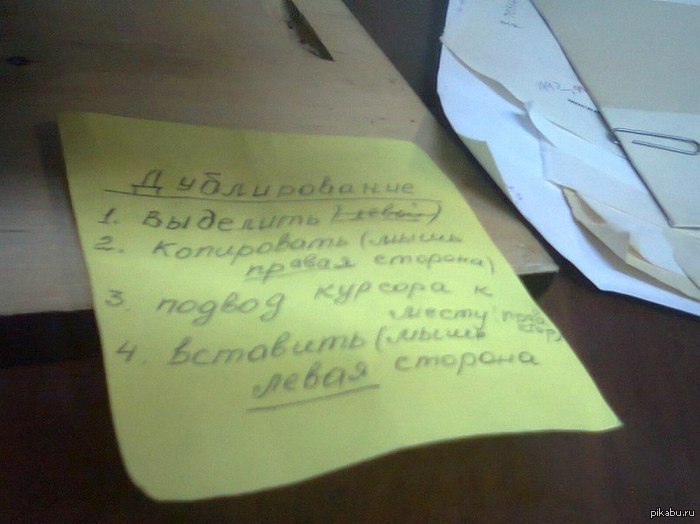 Дублирование
1. Выделить (левой)
2. Копировать (мышь
правая сторона)
3. подвод курсора к
месту (прав
стор)
4. Вставить (мышь
левая сторона
pikabu.ru